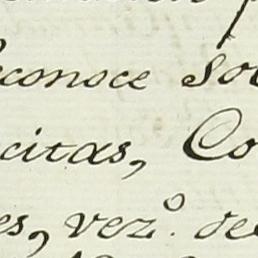 econoce So
citas, Co
es, vez.º de